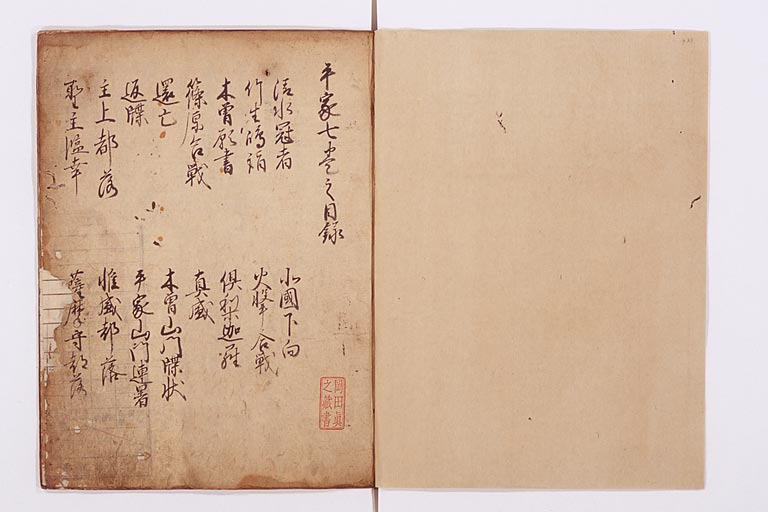 平家七巻之目録
清水冠者
北國下向
竹生嶋詣
火撃合戦
木曽願書
倶梨迦羅
篠原合戦
真盛
還亡
木曽山門牒状
返牒
平家山門連署
主上都落
惟盛都落
聖主臨幸
薩摩守都落
岡田眞
之蔵書